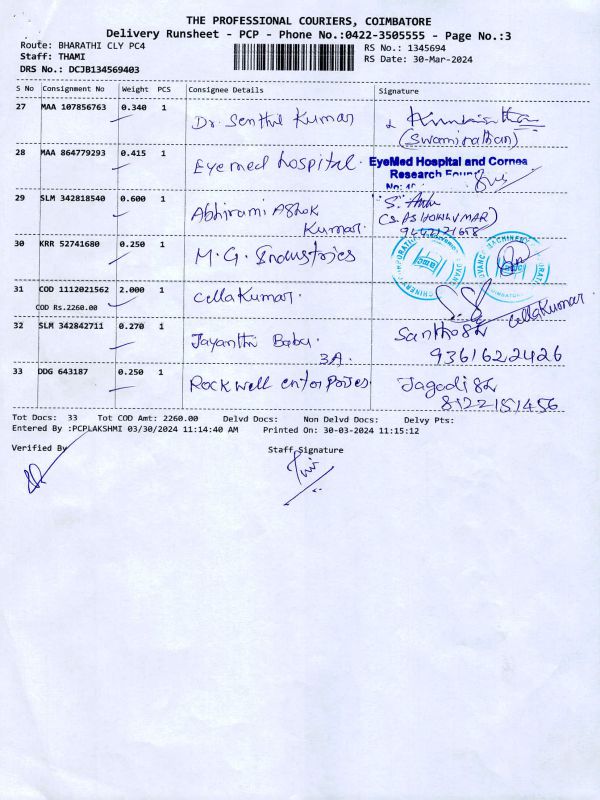 THE PROFESSIONAL COURIERS, COIMBATORE
Delivery Runsheet - PCP - Phone No.:0422-3505555 - Page No.:3
Route: BHARATHI CLY PC4
RS No.: 1345694
Staff: THAMI
RS Date: 30-Mar-2024
DRS No.: DCJB134569403
S No Consignment No Weight PCS Consignee Details Signature
27 MAA 107856763 0.340 1 Dr. Senthil Kumar
(Swaminathan)
28 MAA 864779293 0.415 1 Eyemed hospital. EyeMed Hospital and Cornea
Research
No:
29 SLM 342818540 0.600 1 Abhirami Ashok
Kumar.
(S. ASHOKKUMAR)
30 KRR 52741680 0.250 1 M.G. Industries
31 COD 1112021562 2.000 1 CellaKumar.
COD Rs.2260.00
CellaKumar
32 SLM 342842711 0.270 1 Jayanthi Babu. Santhosh
3A. 9361622426
33 DDG 643187 0.250 1 Rockwell enterprises. Jagadish
8122151456
Tot Docs: 33 Tot COD Amt: 2260.00 Delvd Docs: Non Delvd Docs: Delvy Pts:
Entered By :PCPLAKSHMI 03/30/2024 11:14:40 AM Printed On: 30-03-2024 11:15:12
Verified By Staff Signature